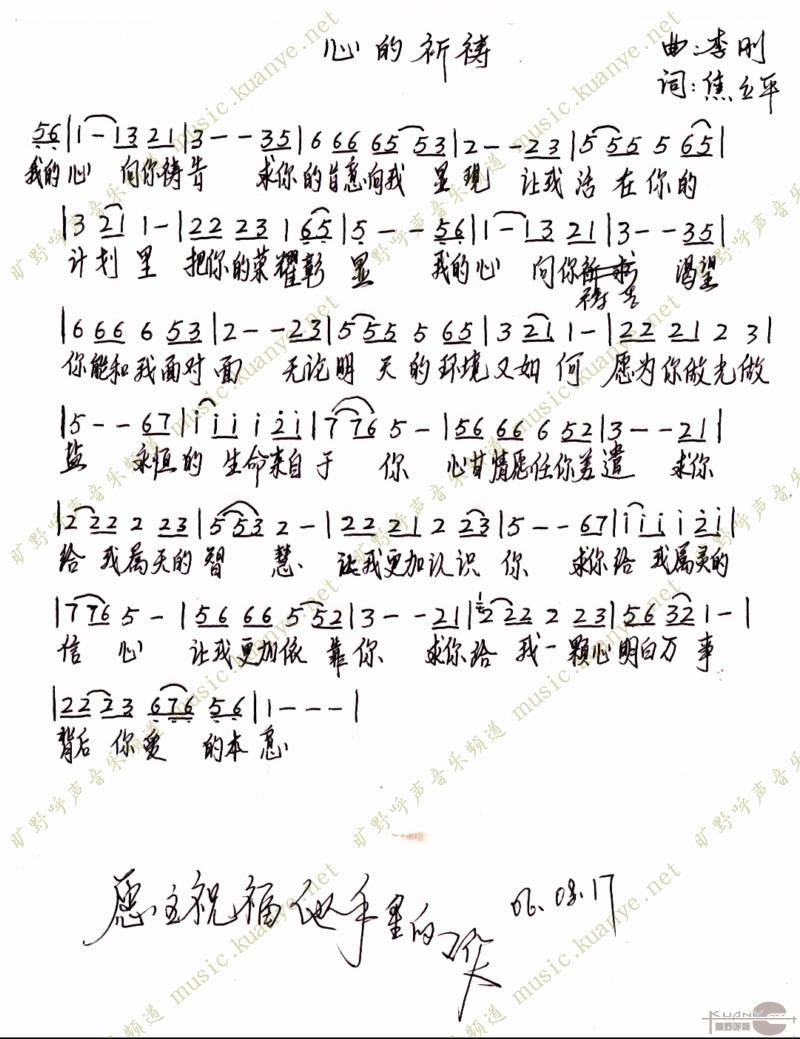 心的祈祷
曲:李刚
词:焦立平
56|1-13 21|3--35|6 66 65 53|2--23|5 55 5 65|
我的心 向你祷告 求你的旨意向我 显现 让我活在你的
|3 21 1-|22 23 1 65|5--56|1-13 21|3--35|
计划里 把你的荣耀彰显 我的心 向你祈求 渴望
祷告
|6 66 6 53|2--23|5 55 5 65|3 21 1-|22 21 2 3|
你能和我面对面 无论明天的环境又如何 愿为你做光做
|5--67|i i i i 2i|7 76 5-|56 66 6 52|3--21|
盐 永恒的 生命来自于 你 心甘情愿任你差遣 求你
|2 22 2 23|5 53 2-|22 21 2 23|5--67|i i i i 2i|
给 我属天的智 慧 让我更加认识 你 求你给 我属灵的
|7 76 5-|56 66 5 52|3--21|2 22 2 23|56 32 1-|
信 心 让我更加依 靠你 求你给 我一颗心明白万 事
|22 23 676 56|1---|
背后 你爱 的本意
愿主祝福他手里的
06.08.17
旷野呼声音乐频道 music.kuanye.net
KUANYE
旷野呼声